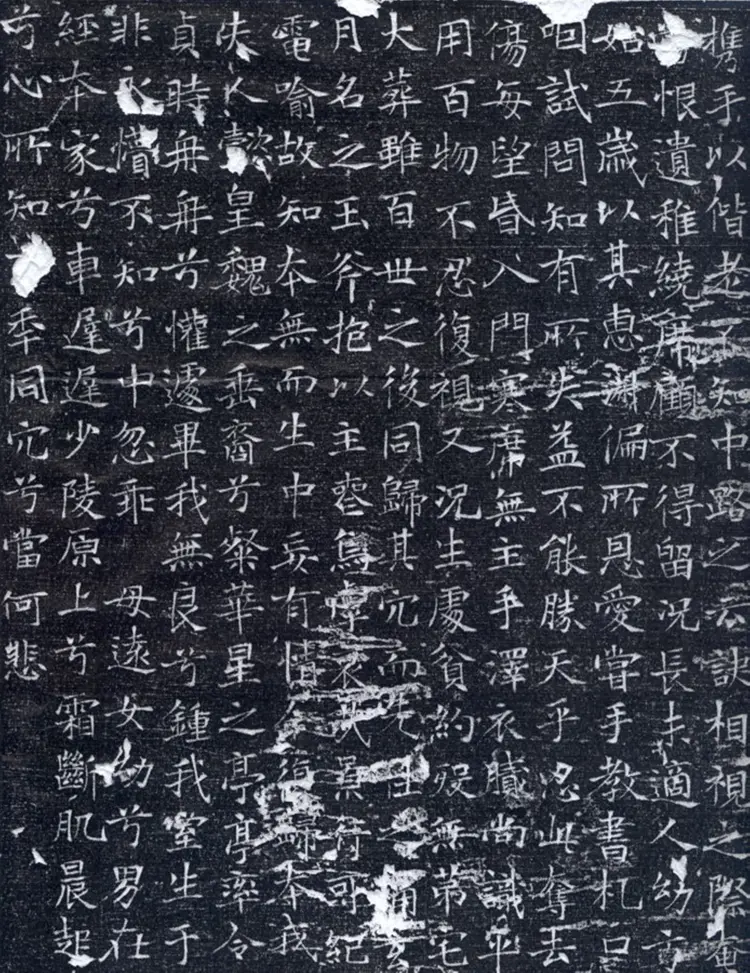 携手以偕老不知中路之云訣相視之際奄
恨遺稚繞席顧不得留況長未適人幼方
始五歲以其惠淑偏所恩愛嘗手教書札口
咽試問知有所失益不能勝天乎忍此奪去
傷每望昏入門寒席無主手澤衣膩尚識平
用百物不忍復視又況生處貧約歿無第宅
大葬雖百世之後同歸其穴而先往之痛玄
月名之玉斧抱以主喪烏虖哀哉景行可紀
電喻故知本無而生中妄有情今復歸本我
夫人懿皇魏之垂裔兮粲華星之亭亭率令
貞時冉冉兮懽遽畢我無良兮鍾我室生于
非永懵不知兮中忽乖母遠女幼兮男在
經本家兮車遲遲少陵原上兮霜斷肌晨起
兮心所知年同穴兮當何悲